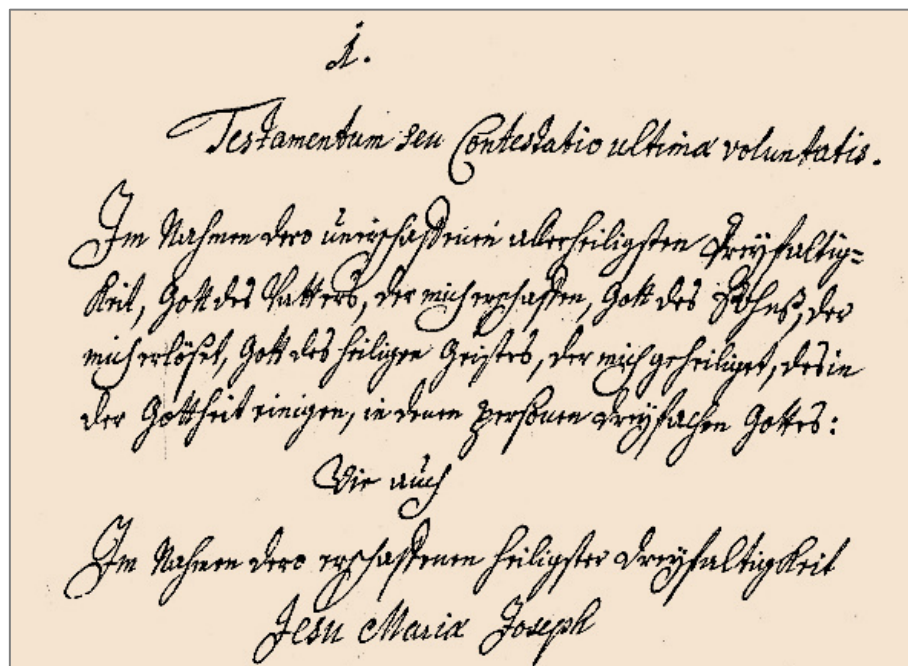 1.
Testamentum seu Contestatio ultimæ voluntatis.
Im Nahmen dero unerschaffenen allerheiligsten Dreyfaltig=
keit, Gott des Vatters, der mich erschaffen, Gott des Sohnß, der
mich erlöset, Gott des heiligen Geisters, der mich geheiliget, des in
der Gottheit einigen, in denen Personen dreyfachen Gottes:
Wie auch
Im Nahmen dero erschaffenen heiligster Dreyfaltigkeit
Jesu Mariæ Joseph